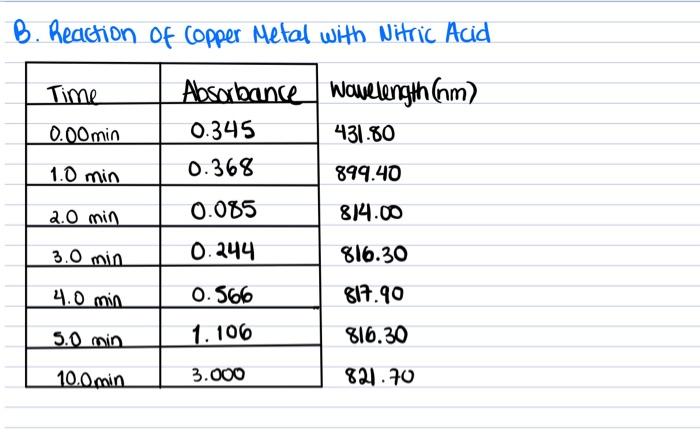 B. Reaction of Copper Metal with Nitric Acid
Time Absorbance Wavelength (nm)
0.00min 0.345 431.80
1.0 min 0.368 899.40
2.0 min 0.085 814.00
3.0 min 0.244 816.30
4.0 min 0.566 817.90
5.0 min 1.106 816.30
10.0min 3.000 821.70